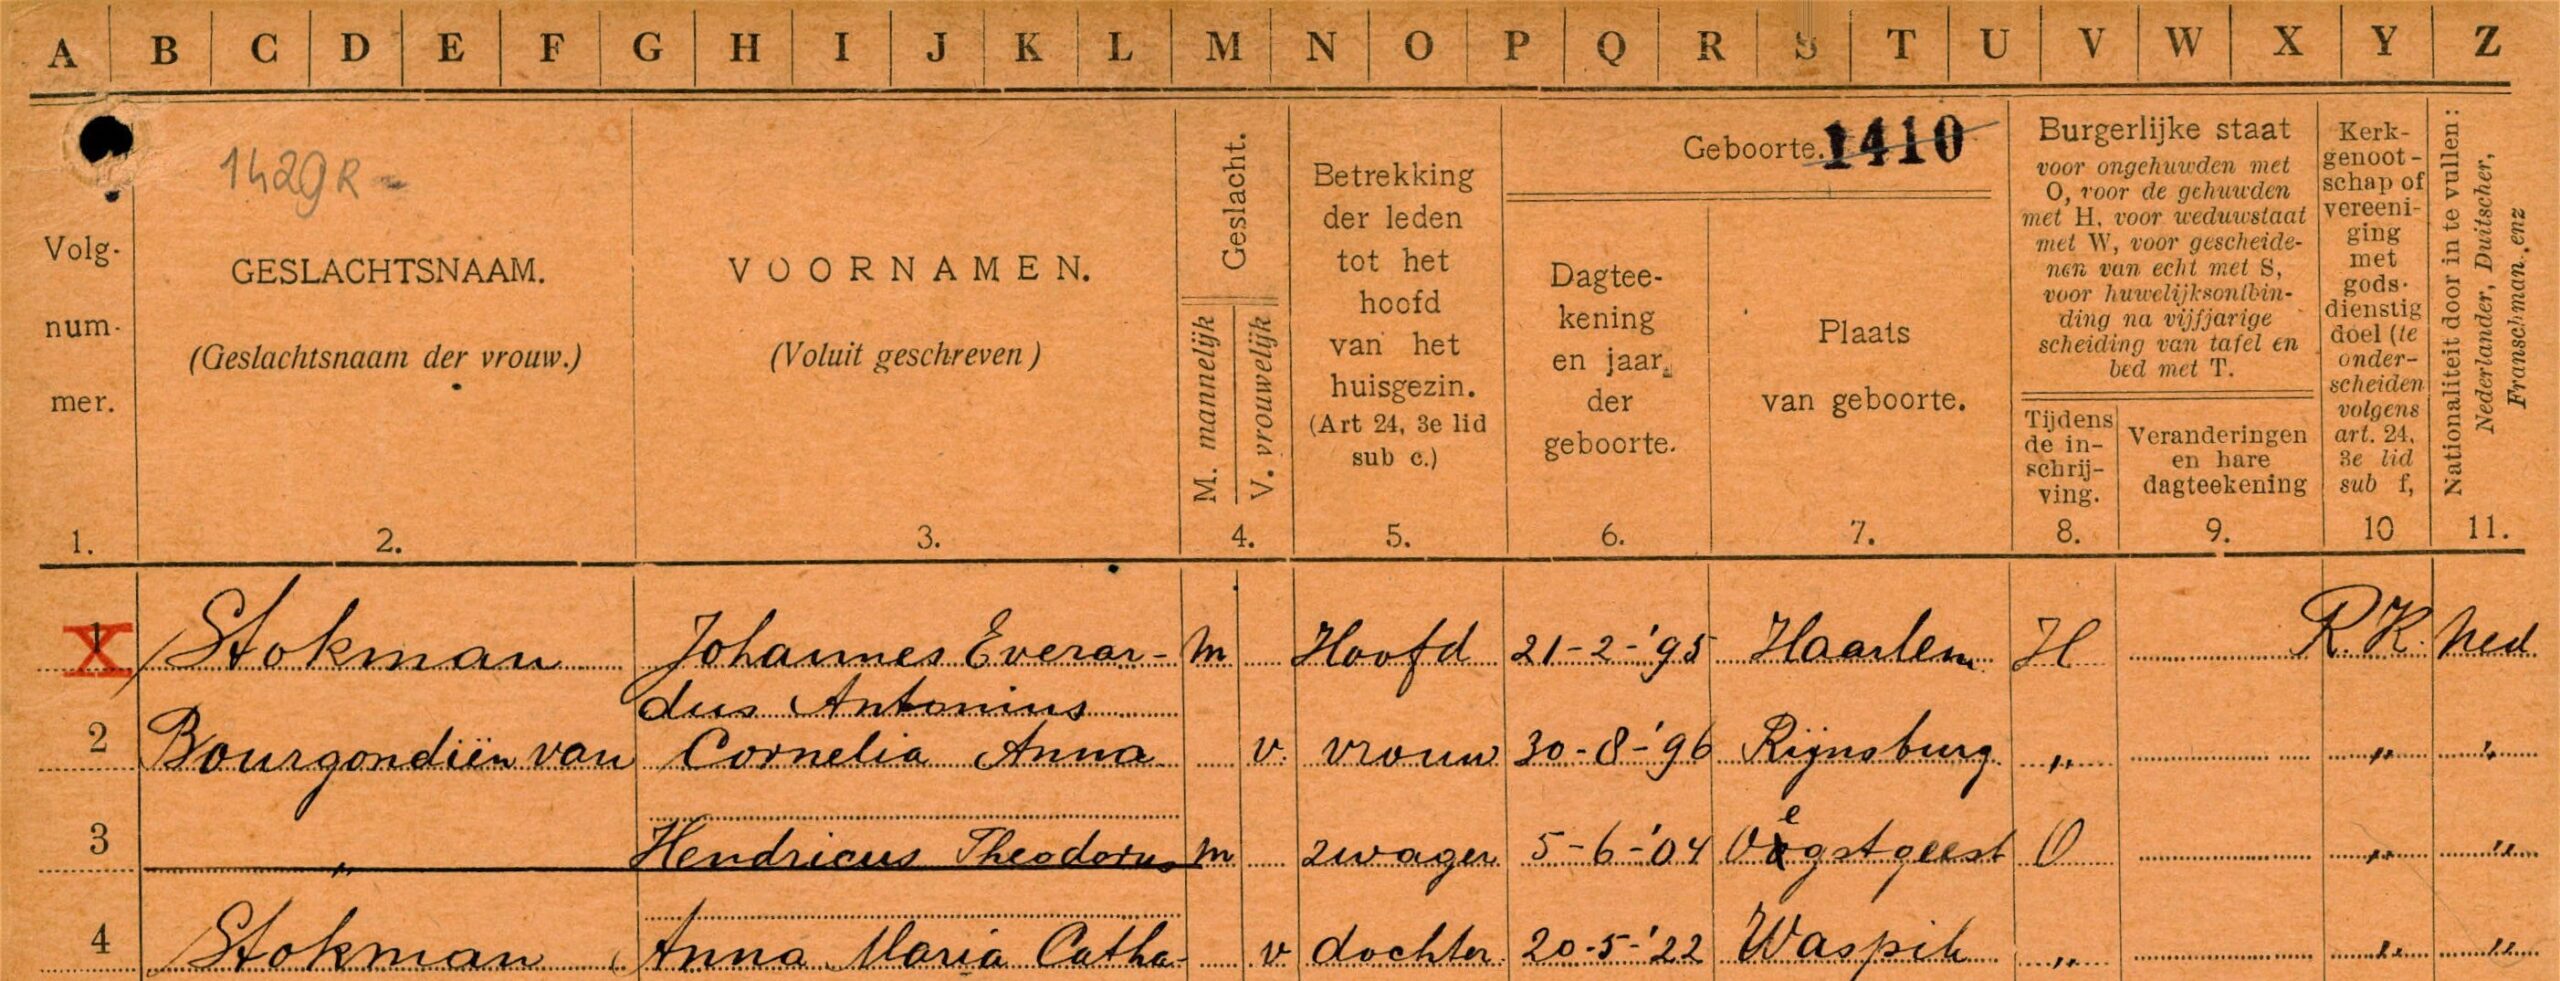 A B C D E F G H I J K L M N O P Q R S T U V W X Y Z
1429R -
Volg-
num-
mer.
1.
GESLACHTSNAAM.
(Geslachtsnaam der vrouw.)
2.
VOORNAMEN.
(Voluit geschreven)
3.
Geslacht.
M. mannelijk
V. vrouwelijk
4.
Betrekking
der leden
tot het
hoofd
van het
huisgezin.
(Art 24, 3e lid
sub c.)
5.
Geboorte. 1410
Dagtee-
kening
en jaar
der
geboorte.
6.
Plaats
van geboorte.
7.
Burgerlijke staat
voor ongehuwden met
O, voor de gehuwden
met H, voor weduwstaat
met W, voor gescheide-
nen van echt met S,
voor huwelijksontbin-
ding na vijfjarige
scheiding van tafel en
bed met T.
Tijdens
de in-
schrij-
ving.
8.
Veranderingen
en hare
dagteekening
9.
Kerk-
genoot-
schap of
vereeni-
ging
met
gods-
dienstig
doel (te
onder-
scheiden
volgens
art. 24,
3e lid
sub f,
10
Nationaliteit door in te vullen:
Nederlander, Duitscher,
Franschman, enz
11.
1 X Stokman Johannes Everar- m Hoofd 21-2-'95 Haarlem H R.K. Ned.
dus Antonius
2 Bourgondiën van Cornelia Anna v. vrouw 30-8-'96 Rijnsburg " " "
3 " Hendricus Theodorus m zwager 5-6-'04 Oegstgeest O " "
4 Stokman Anna Maria Catha- v dochter 20-5-'22 Waspik " " "